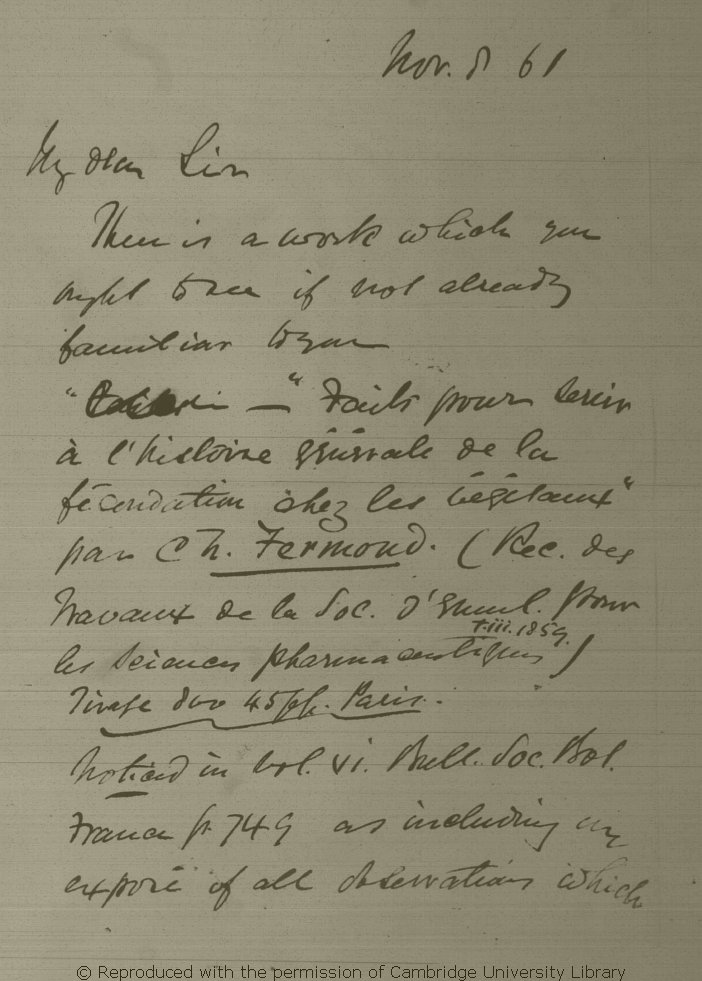 Nov. 8 61
My dear Sir
There is a work which you
ought to see if not already
familiar to you
" — " Faits pour servir
à l'histoire générale de la
fécondation chez les végétaux"
par Ch. Fermond. (Rec. des
travaux de la Soc. d'Émul. pour
les sciences pharmaceutiques)
T.iii. 1859.
Tirage 8vo 45 pp. Paris.
Noticed in vol. vi. Bull. Soc. Bot.
France p 749 as including an
exposé of all observations which
© Reproduced with the permission of Cambridge University Library